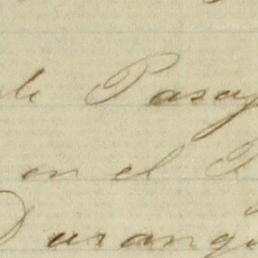 de Pasaj
en el P
Durang